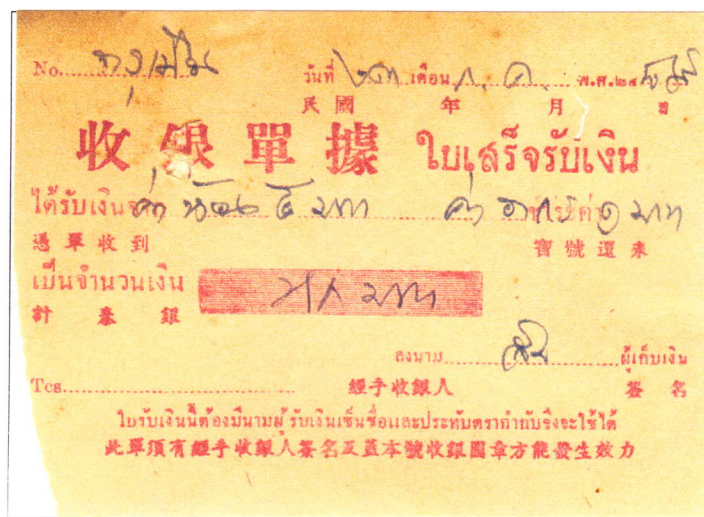 No.
วันที่ ๒๓ เดือน ก.ค. พ.ศ.๒๔
民國 年 月 日
收銀單據 ใบเสร็จรับเงิน
ได้รับเงินจาก ค่าห้อง ๕ บาท ค่าอาหาร ๑ บาท
憑單收到 寶號還來
เป็นจำนวนเงิน หก บาท
計泰銀
ลงนาม ผู้เก็บเงิน
Tcs. 經手收銀人 簽名
ใบรับเงินนี้ต้องมีนามผู้รับเงินเซ็นชื่อและประทับตรากำกับจึงจะใช้ได้
此單須有經手收銀人簽名及蓋本號收銀圖章方能發生效力